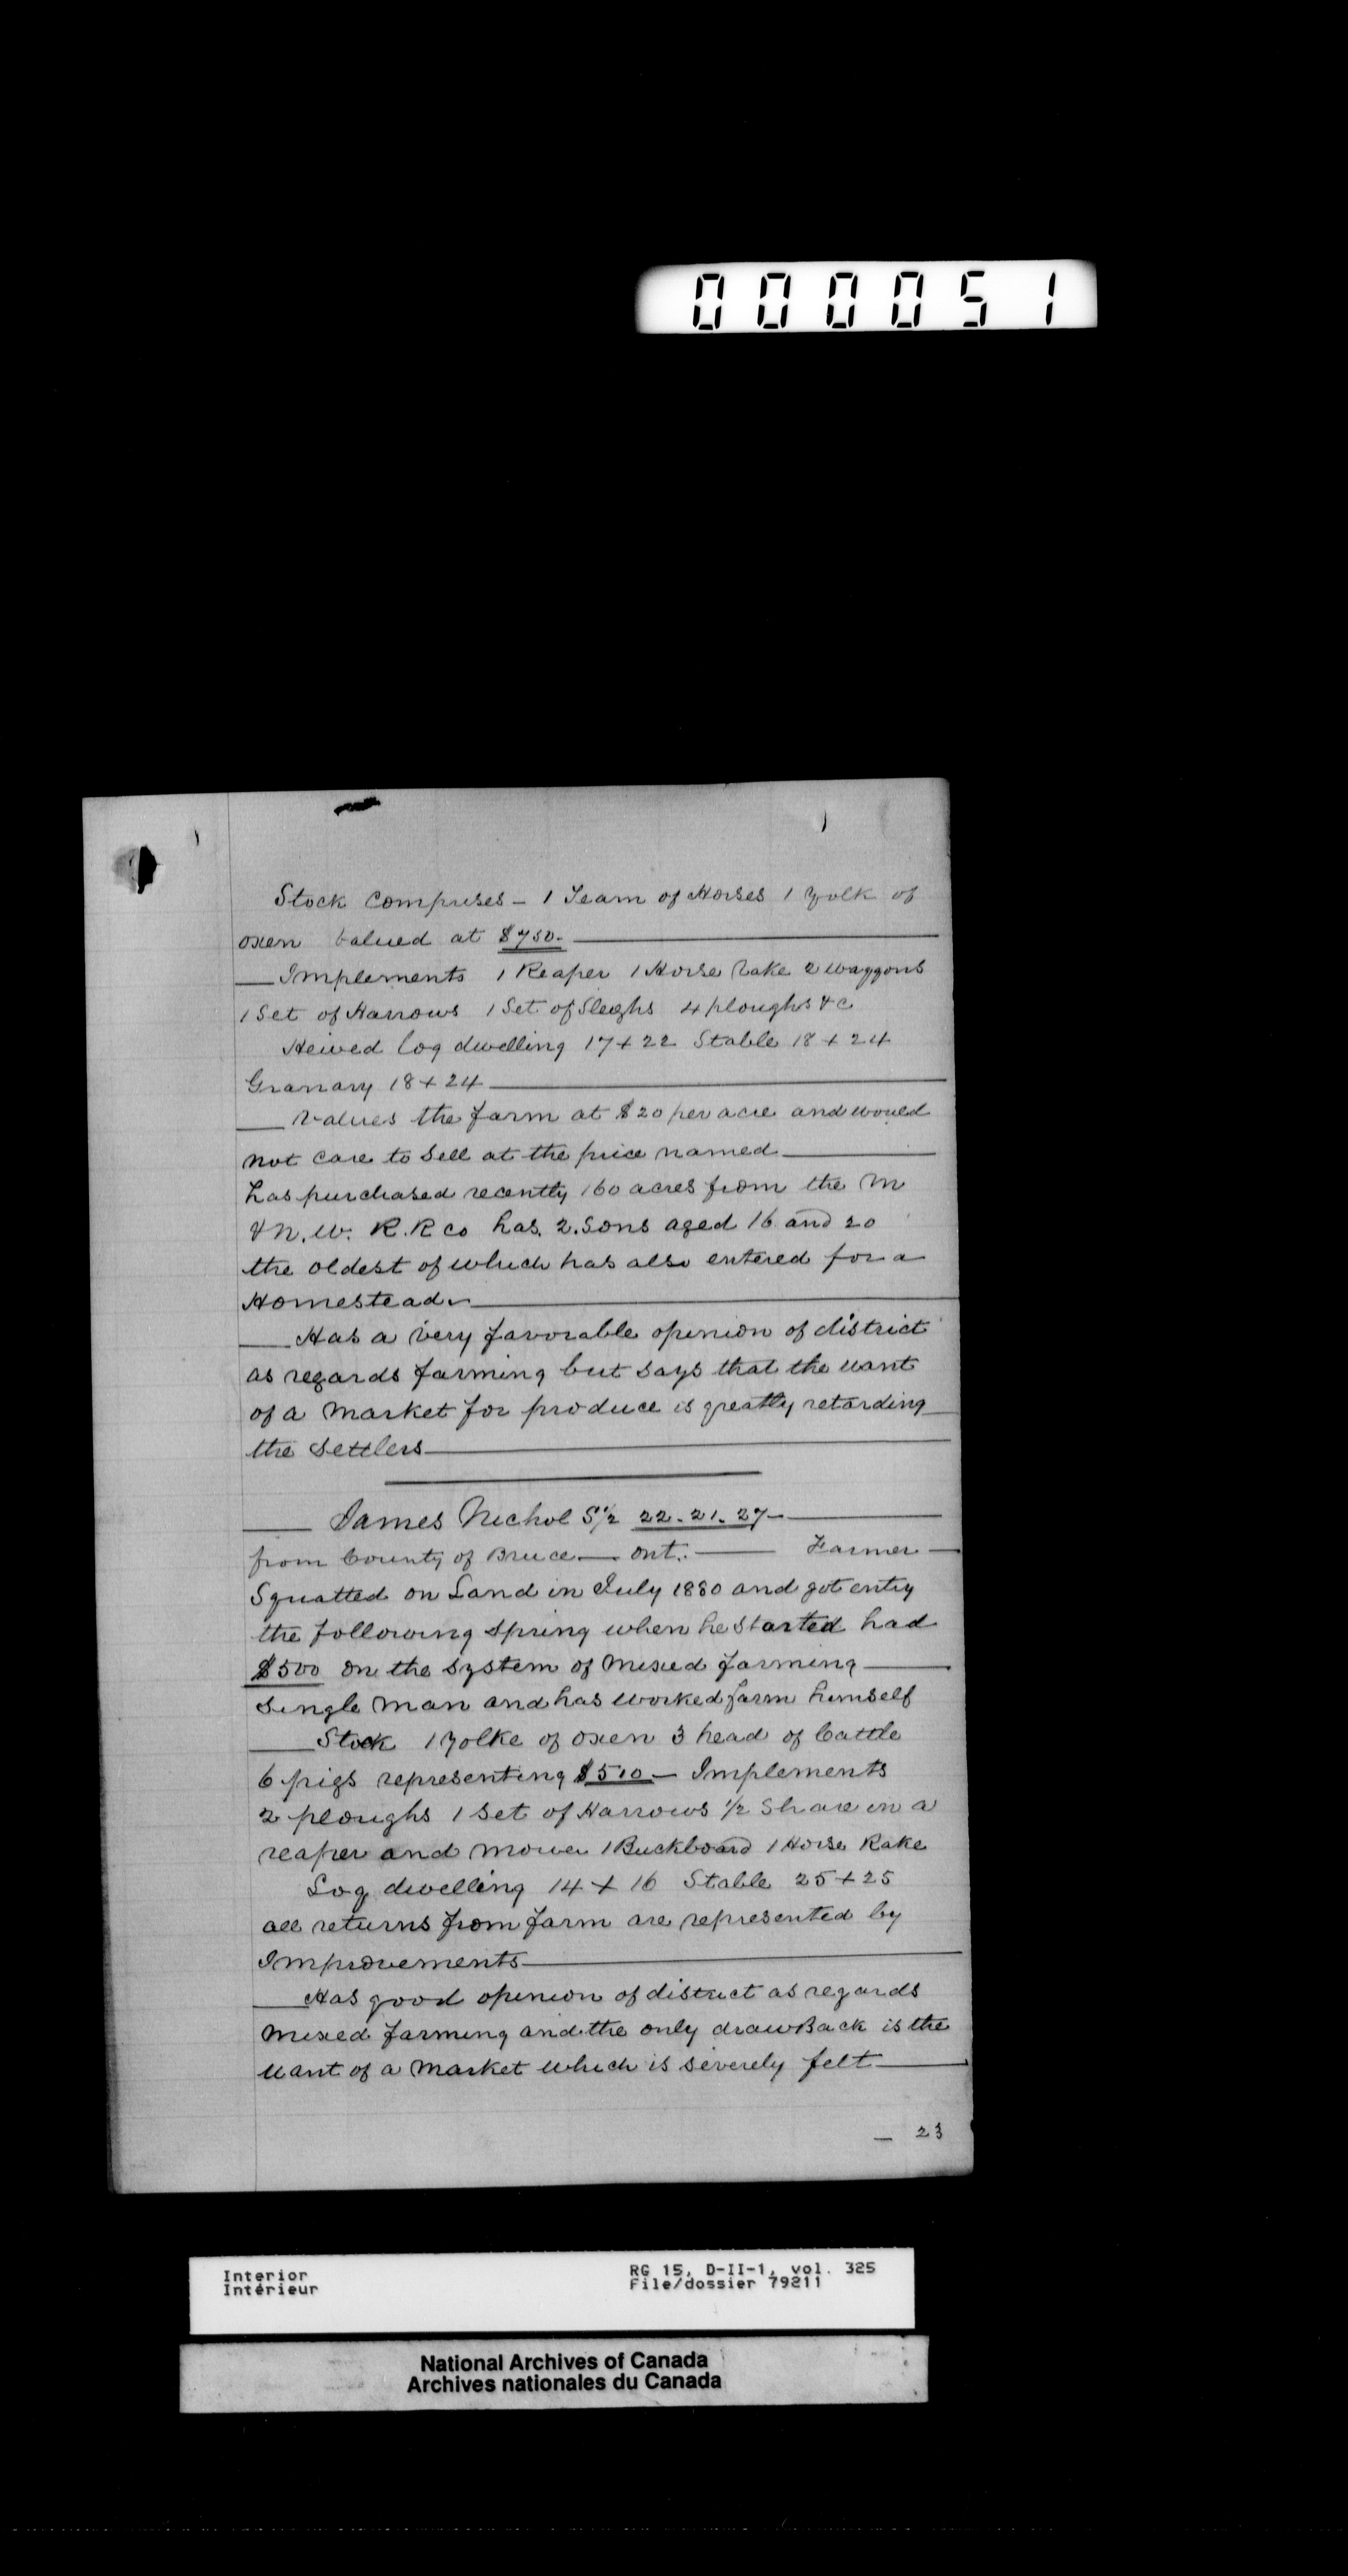 000051
Stock Comprises - 1 Team of Horses 1 Yolk of
oxen Valued at $750.
Implements 1 Reaper 1 Horse rake 2 waggons
1 Set of Harrows 1 Set of Sleighs 4 ploughs &c
Hewed log dwelling 17 + 22 Stable 18 + 24
Granary 18 + 24
Values the farm at $20 per acre and would
not care to sell at the price named
has purchased recently 160 acres from the M
& N. W. R. R Co has 2 Sons aged 16 and 20
the oldest of which has also entered for a
Homestead
Has a very favorable opinion of district
as regards farming but says that the want
of a Market for produce is greatly retarding
the Settlers
James Nichol S½ 22-21-27
from County of Bruce Ont. Farmer
Squatted on Land in July 1880 and got entry
the following Spring when he started had
$500 on the System of Mixed farming
Single Man and has worked farm himself
Stock 1 Yolke of oxen 3 head of Cattle
6 pigs representing $510 - Implements
2 ploughs 1 Set of Harrows ½ Share in a
reaper and Mower 1 Buckboard 1 Horse Rake
Log dwelling 14 + 16 Stable 25 + 25
all returns from farm are represented by
Improvements
Has good opinion of district as regards
Mixed farming and the only drawBack is the
want of a Market which is severely felt
— 23
Interior RG 15, D-II-1, vol. 325
Intérieur File/dossier 79211
National Archives of Canada
Archives nationales du Canada